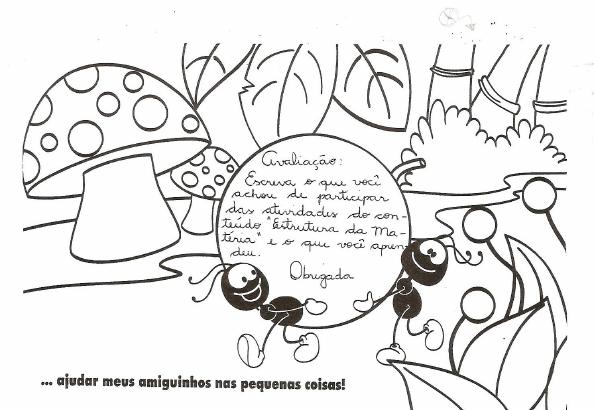 Avaliação:
Escreva o que você
achou de participar
das atividades do con-
teúdo "Estrutura da Ma-
téria" e o que você apren-
deu.
Obrigada
... ajudar meus amiguinhos nas pequenas coisas!